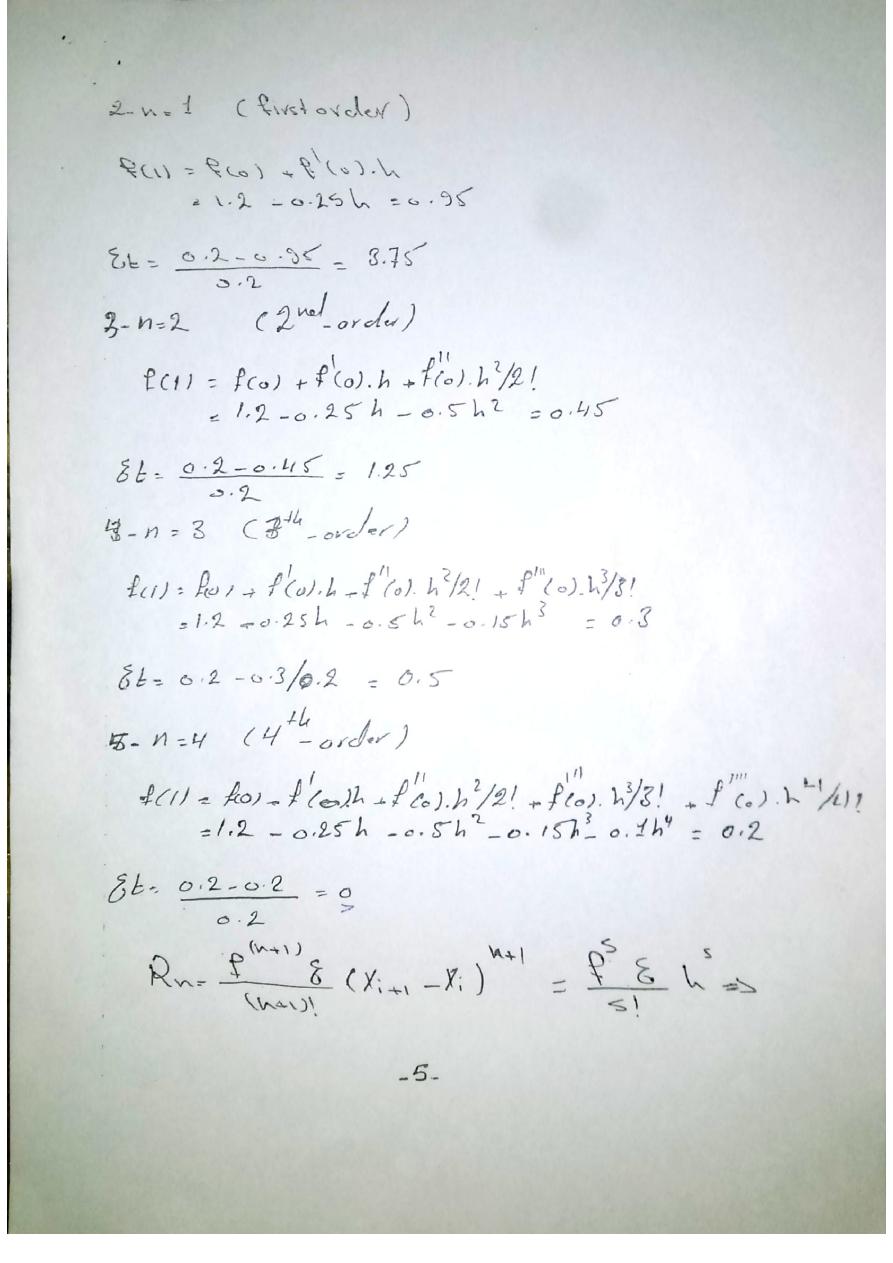 2- n = 1 (first order)
f(1) = f(0) + f'(0).h
= 1.2 - 0.25h = 0.95
Ɛt = (0.2 - 0.95)/0.2 = 3.75
3- n = 2 (2nd - order)
f(1) = f(0) + f'(0).h + f''(0).h²/2!
= 1.2 - 0.25h - 0.5h² = 0.45
Ɛt = (0.2 - 0.45)/0.2 = 1.25
4- n = 3 (3th - order)
f(1) = f(0) + f'(0).h + f''(0).h²/2! + f'''(0).h³/3!
= 1.2 - 0.25h - 0.5h² - 0.15h³ = 0.3
Ɛt = 0.2 - 0.3/0.2 = 0.5
5- n = 4 (4th - order)
f(1) = f(0) + f'(0)h + f''(0).h²/2! + f'''(0).h³/3! + f''''(0).h⁴/4!
= 1.2 - 0.25h - 0.5h² - 0.15h³ - 0.1h⁴ = 0.2
Ɛt = (0.2 - 0.2)/0.2 = 0
Rn = f^(n+1) Ɛ/(n+1)! (Xi+1 - Xi)^n+1 = f^5 Ɛ/5! h^5 =>
-5-